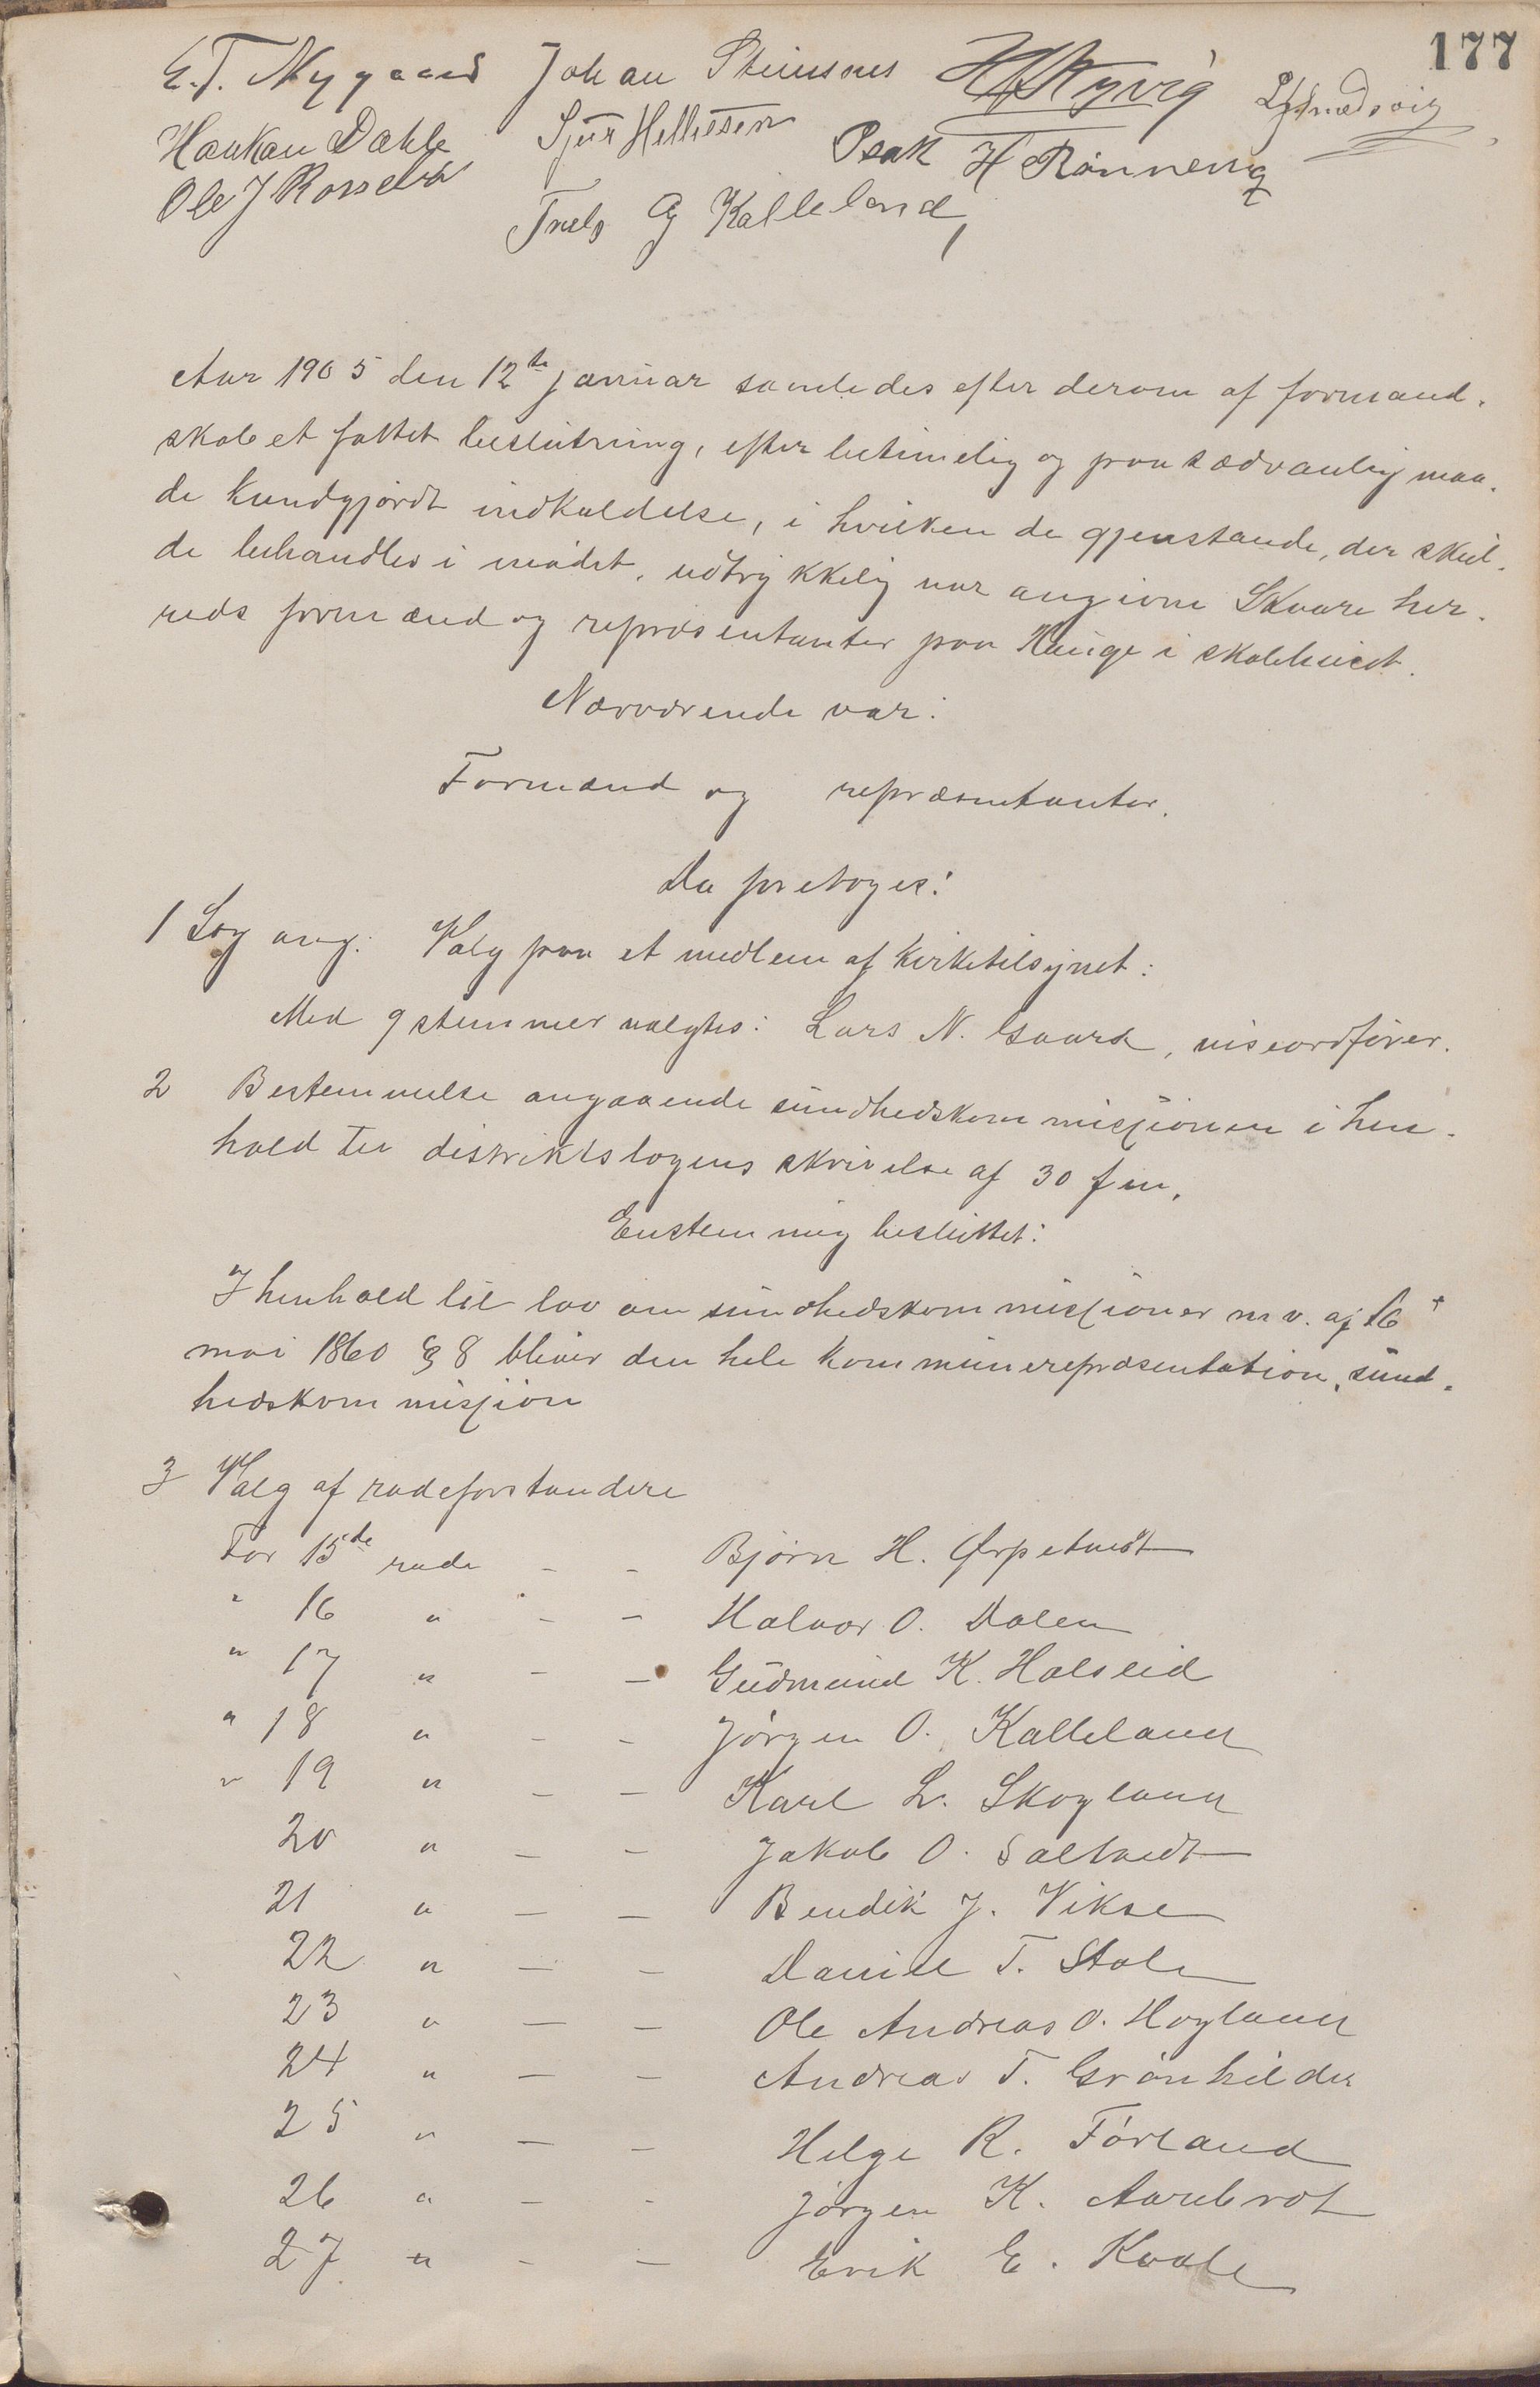 177
E. T. Nygaard Johan Steinsnes
Haakan Dahle Sjur Helliesen Isak H Rønnevig
Ole J Rossebø
Troels Aj Kalleland,
Aar 1905 den 12te januar samledes efter derom af formand-
skabet fattet beslutning, efter betimelig og paa sædvanlig maa-
de kundgjordt indkaldelse, i hvilken de gjenstande, der skul-
de behandles i mødet, udtrykkelig var angivne Skaare her-
reds formænd og repræsentanter paa Hauge i skolehuset.
Nærværende var:
Formænd og repræsentanter.
Da foretoges:
1 Sag ang. Valg paa et medlem af kirketilsynet:
Med 9 stemmer valgtes: Lars N. Gaard, viseordfører.
2 Bestemmelse angaaende sundhedskommisjionen i hen-
hold til distriktslægens skrivelse af 30 f m.
Enstemmig besluttet:
I henhold til lov om sundhedskommisjioner m v. af 16
mai 1860 § 8 bliver den hele kommunerepræsentation, sund-
hedskommisjion
3 Valg af rodeforstandere
For 15de rode - - Bjørn H. Ørpetvedt
" 16 " - - Halvor O. Dalen
" 17 " - - Gudmund K. Halseid
" 18 " - - Jørgen O. Kalleland
" 19 " - - Karl L. Skogland
20 " - - Jakob O. Saltvedt
21 " - - Bendik J. Vikse
22 " - - Daniel T. Stole
23 " - - Ole Andreas O. Høgland
24 " - - Andreas T. Grønhilder
25 " - - Helge R. Førland
26 " - - Jørgen K. Aarebrot
27 " - - Erik E. Kvale